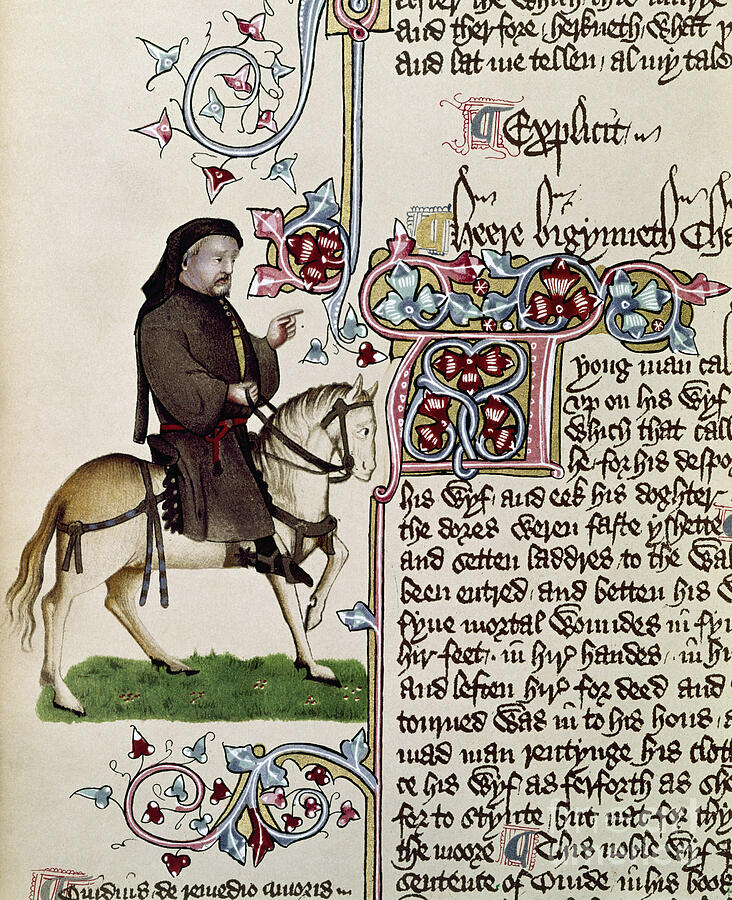 and therfore herkneth what y
and lat me tellen al my tale
Explicit
Heere bigynneth Cha
yong man cal
up on his wyf
which that call
he for his despo
his wyf and eek his doghter
the dores weren faste yshette
and setten laddres to the wal
been entred and betten his
fyue mortal woundes in
hir feet in hir handes in hi
and leften hir for deed and
tourned was in to his hous a
mad man rentynge his cloth
ce his wyf as ferforth as she
for to stynte but nat for thy
the moore This noble wyf p
sentence of Ouide in his book
Ouidius de remedio amoris